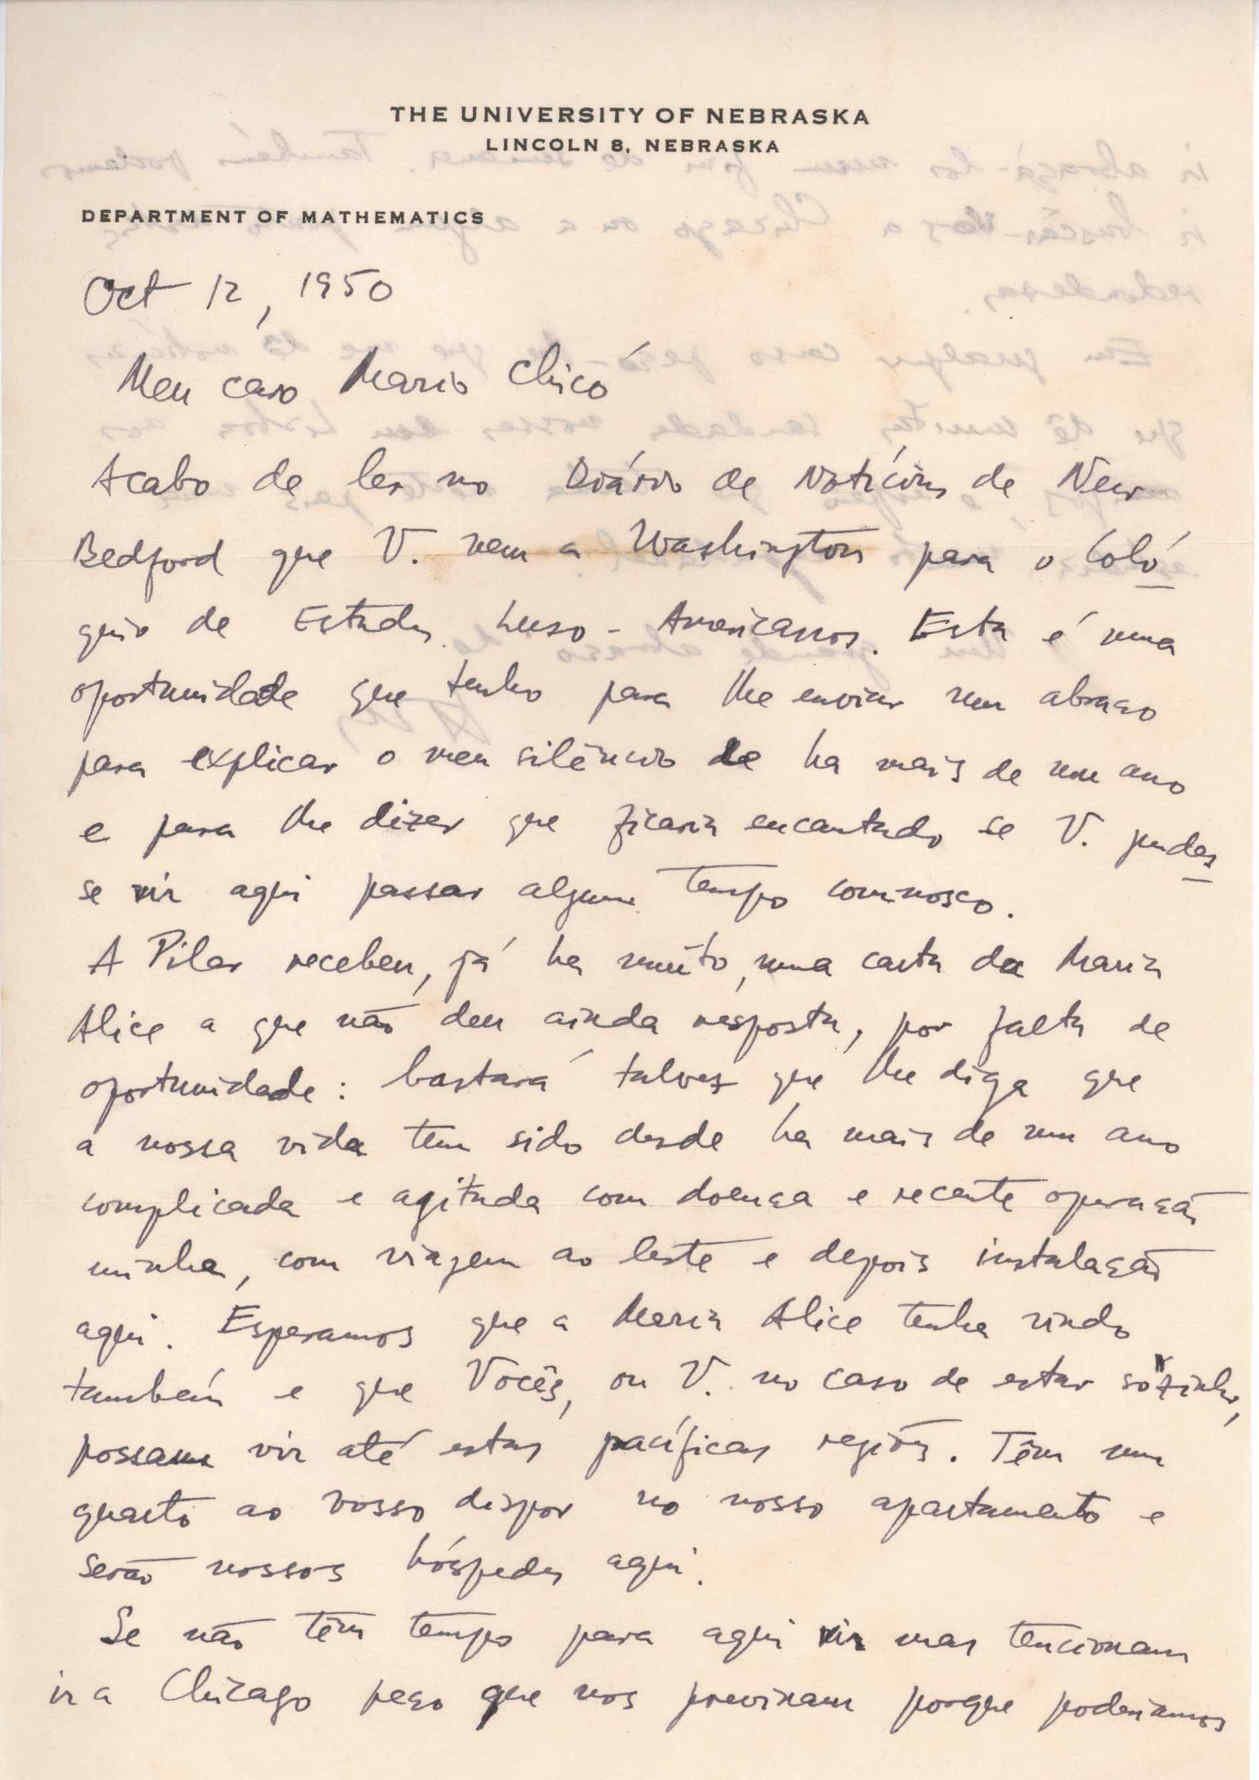 THE UNIVERSITY OF NEBRASKA
LINCOLN 8, NEBRASKA
DEPARTMENT OF MATHEMATICS
Oct 12, 1950
Meu caro Mario Chicó
Acabo de ler no Diário de Notícias de New
Bedford que V. vem a Washington para o Coló
quio de Estudos Luso-Americanos. Esta é uma
oportunidade que tenho para lhe enviar um abraço
para explicar o meu silêncio de ha mais de um ano
e para lhe dizer que ficaria encantado se V. pudes
se vir aqui passar algum tempo comnosco.
A Pilar recebeu, já ha muito, uma carta da Maria
Alice a que não deu ainda resposta, por falta de
oportunidade: bastará talvez que lhe diga que
a nossa vida tem sido desde ha mais de um ano
complicada e agitada com doença e recente operação
minha, com viagem ao leste e depois instalação
aqui. Esperamos que a Maria Alice tenha vindo
também e que Vocês, ou V. no caso de estar sòzinho,
possam vir até estas pacíficas regiões. Têm um
quarto ao vosso dispor no nosso apartamento e
serão nossos hóspedes aqui.
Se não têm tempo para aqui vir mas tencionam
ir a Chicago peço que nos previnam porque poderiamos